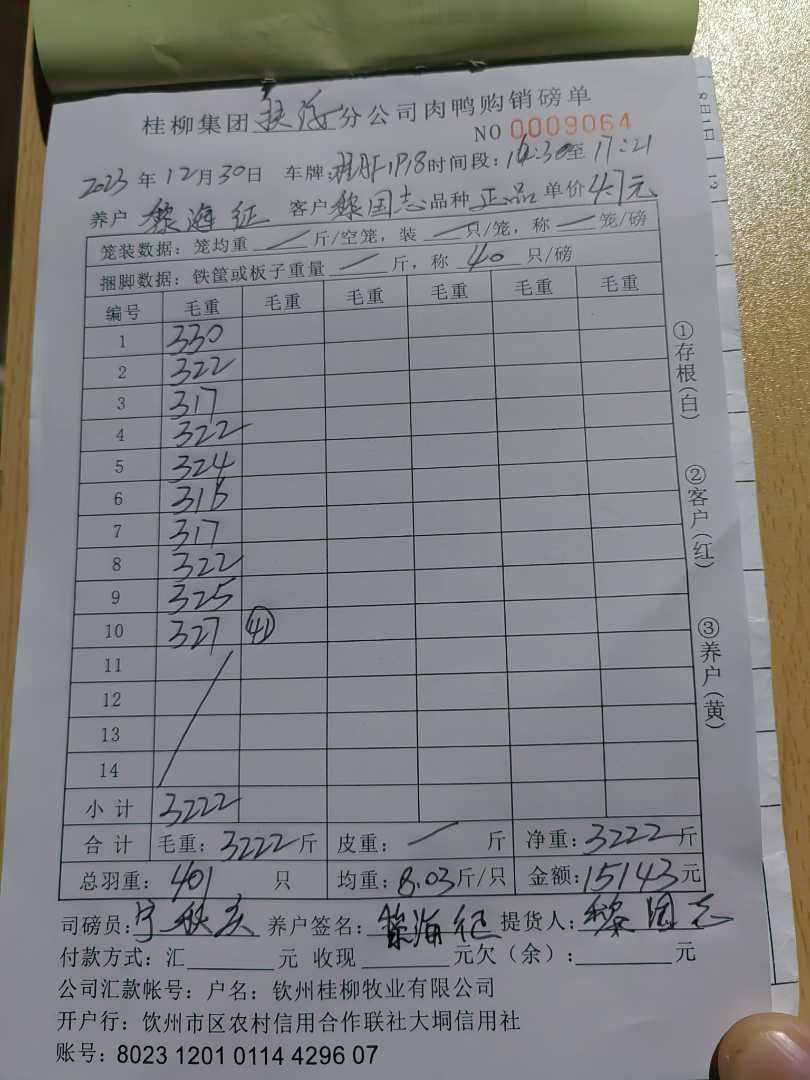 桂柳集团扶海分公司肉鸭购销磅单
NO 0009064
2023年12月30日 车牌:桂AF1P18时间段:16:30至17:21
养户 黎海征 客户黎国志品种 正品 单价4.7元
笼装数据:笼均重 / 斤/空笼,装 / 只/笼,称 / 笼/磅
捆脚数据:铁筐或板子重量 / 斤,称 40 只/磅
编号 毛重 毛重 毛重 毛重 毛重 毛重
1 330
2 322
3 317
4 322
5 324
6 316
7 317
8 322
9 325
10 327 ㊶
11
12
13
14
小计 3222
合计 毛重:3222斤 皮重: / 斤 净重:3222斤
总羽重:401 只 均重:8.03斤/只 金额:15143元
司磅员:宁秋 养户签名:黎海征 提货人:黎国志
付款方式:汇 元 收现 元欠(余): 元
公司汇款帐号:户名:钦州桂柳牧业有限公司
开户行:钦州市区农村信用合作联社大垌信用社
账号:8023 1201 0114 4296 07
①存根(白)
②客户(红)
③养户(黄)